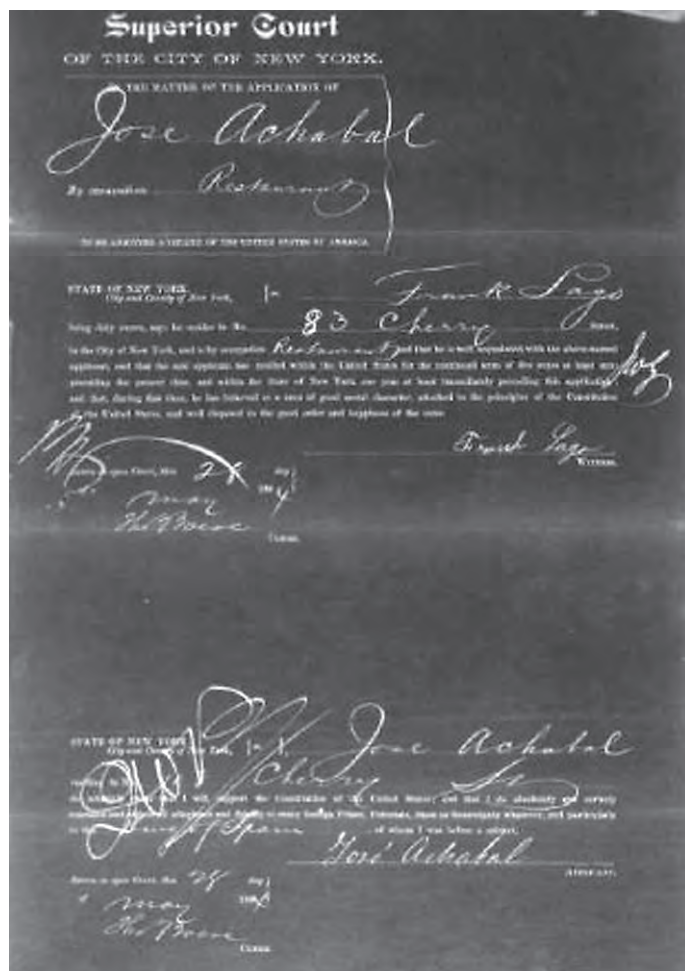 Superior Court
OF THE CITY OF NEW YORK.
IN THE MATTER OF THE APPLICATION OF
Jose Achabal
By occupation Restaurant
TO BE ADMITTED A CITIZEN OF THE UNITED STATES OF AMERICA.
STATE OF NEW YORK,
City and County of New York, ss Frank Lago
being duly sworn, says: he resides in No. 83 Cherry Street,
in the City of New York, and is by occupation Restaurant and that he is well acquainted with the above-named
applicant; and that the said applicant has resided within the United States for the continued term of five years at least next
preceding the present time, and within the State of New York one year at least immediately preceding this application
and that, during that time, he has behaved as a man of good moral character, attached to the principles of the Constitution
of the United States, and well disposed to the good order and happiness of the same
Frank Lago
WITNESS.
Sworn in open Court, this 28 day
May
CLERK.
STATE OF NEW YORK,
City and County of New York, ss Jose Achabal
Cherry
I will support the Constitution of the United States; and that I do absolutely and entirely
to every foreign Prince, Potentate, State or Sovereignty whatever, and particularly
to the King of Spain of whom I was before a subject.
José Achabal
APPLICANT.
Sworn in open Court, this 28 day
May
CLERK.